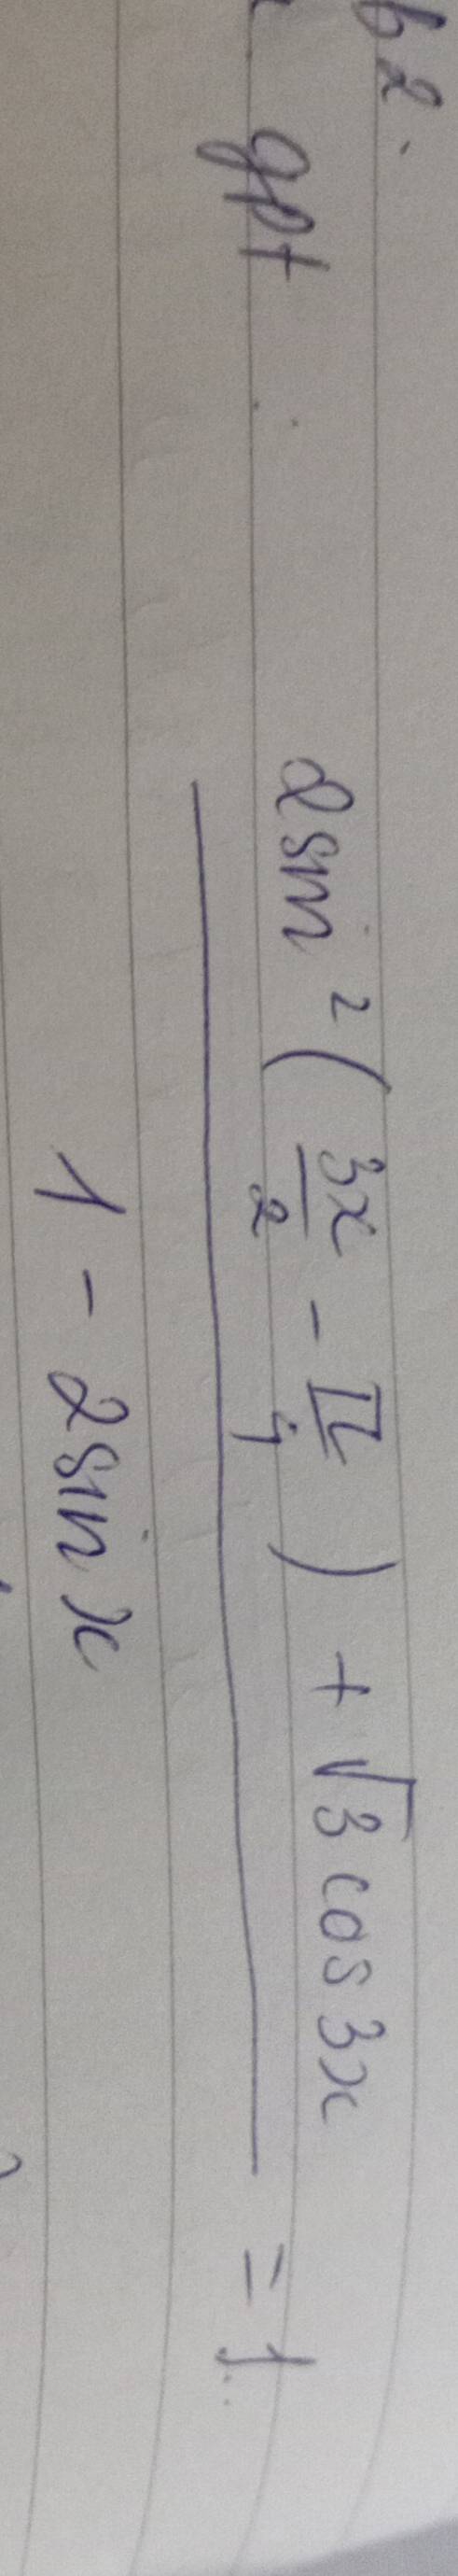 b2.
gpt
2sin²(3x/2 - π/4) + √3 cos3x
1 - 2sinx
= 1